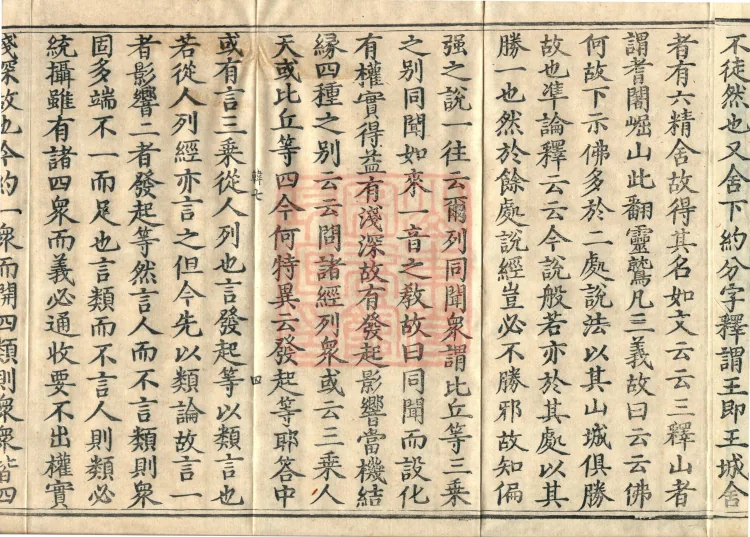 不徒然也又舍下約分字釋謂王即王城舍
者有六精舍故得其名如文云云三釋山者
謂耆闍崛山此翻靈鷲凡三義故曰云云佛
何故下示佛多於二處說法以其山城俱勝
故也準論釋云云今說般若亦於其處以其
勝一也然於餘處說經豈必不勝邪故知偏
强之說一往云爾列同聞衆謂比丘等三乗
之别同聞如來一音之教故曰同聞而設化
有權實得益有淺深故有發起影響當機結
縁四種之别云云問諸經列衆或云三乗人
天或比丘等四今何特異云發起等耶答中
韓七
四
或有言三乗從人列也言發起等以類言也
若從人列經亦言之但今先以類論故言一
者影響二者發起等然言人而不言類則衆
固多端不一而足也言類而不言人則類必
統攝雖有諸四衆而義必通收要不出權實
淺深故也今約一衆而開四類則衆衆皆四